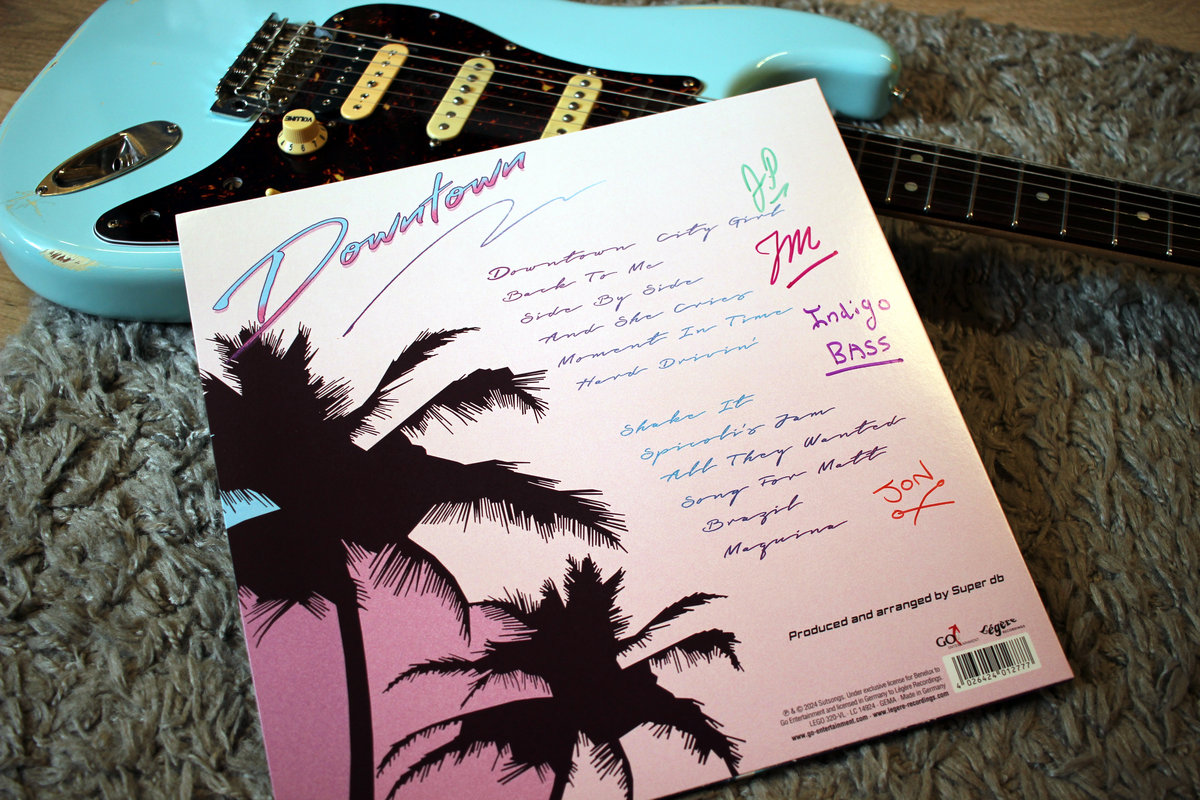 VOLUME
4 5 6 7 8
Downtown
Downtown City Girl
Back To Me
Side By Side
And She Cries
Moment In Time
Hard Drivin'
Shake It
Spicoli's Jam
All They Wanted
Song For Matt
Brazil
Maquina
JP
JM
Indigo
BASS
JON
Produced and arranged by Super db
GO
ENTERTAINMENT
Légère
RECORDINGS
4 026424 012777
℗ & © 2024 Sutsongs. Under exclusive license for Benelux to
Go Entertainment and licensed in Germany to Légère Recordings
LEGO 320-VL · LC 14924 · GEMA · Made in Germany
www.go-entertainment.com · www.legere-recordings.com